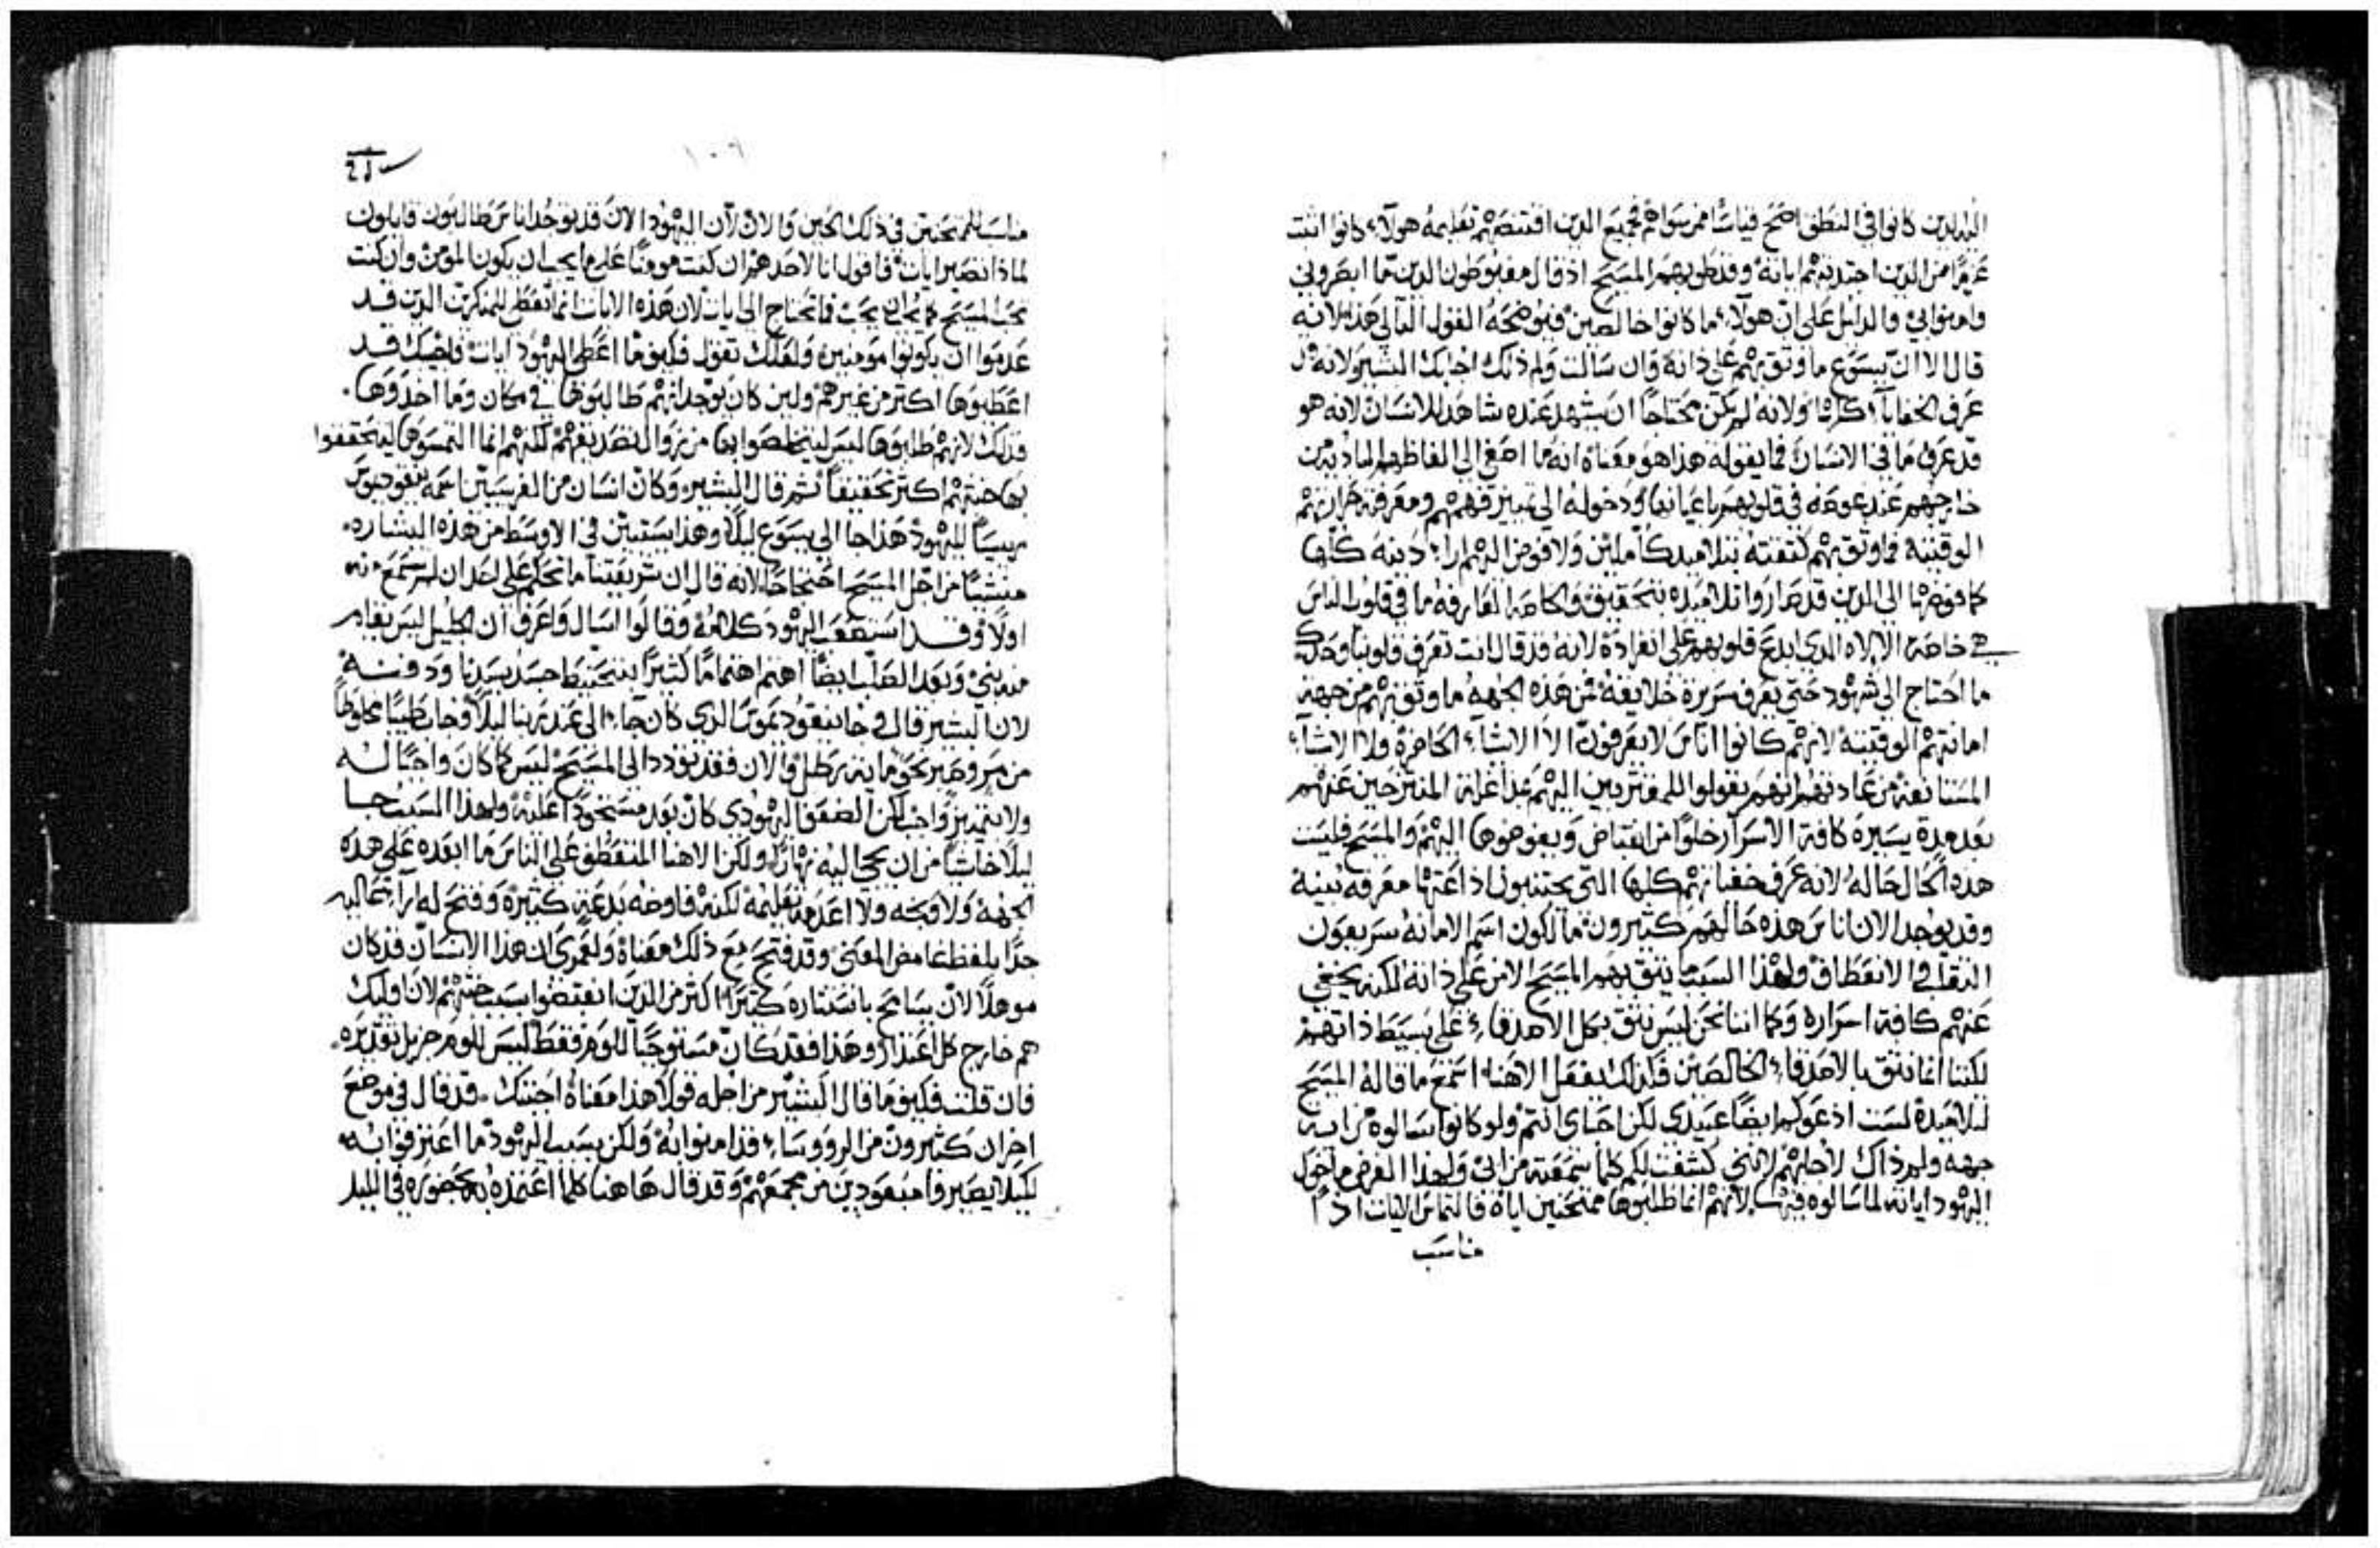 الذين كانوا في النطق اصح قياسًا ممن سواهم فجميع الذين اقتنصهم تعليمه هولاء كانوا اثبت
عزمًا من الذين اجتذبتهم اياته وقد طوبهم المسيح اذ قال مغبوطون الذين ما ابصروني
وامنوا بي والدليل على ان هولاء ما كانوا خالصين فيوضحه القول التالي هذا لانه
قال لا ان يسوع ما وثق بهم على ذاته وان سالت ولم ذلك اجابك البشير لانه
عرف الخفايا كلها ولانه لم يكن محتاجًا ان يشهد عنده شاهد للانسان لانه هو
قد عرف ما في الانسان فما يقوله هذا هو معناه انه ما اصغى الى الفاظهم البادية من
خارجهم عند غوصه في قلوبهم باعيانها ودخوله الى تمييز فهمهم ومعرفته حرارتهم
الوقتية فما وثق بهم كثقته بتلاميذ كاملين ولا فوض اليهم اراء دينه كلها
كما فوضها الى الذين قد صاروا تلاميذه بتحقيق والخاصه العارفه ما في قلوب الناس
هي خاصة الالاه الذي ابدع قلوبهم على انفراده لانه قد قال انت تعرف قلوبنا وحدك
ما احتاج الى شهود حتى يعرف سريرة خلايقه فمن هذه الجهه ما وثق بهم من جهة
امانتهم الوقتية لانهم كانوا اناس لا يعرفون لا الاشياء الحاضرة ولا الاشياء
المستانفة من عادتهم انهم يقولوا للمقتربين اليهم غدا اغلة المنتزحين عنهم
بعد مدة يسيرة كافة الاسرار خلوًا من انقباض ويفوضوها اليهم والمسيح فليست
هذه الحال حاله لانه عرف خفياتهم كلها التي يجتنبون اذاعتها معرفه بينه
وقد يوجد الان اناس هذه حالهم كثيرون مالكون اسم الامانه سريعون
التقلب والانعطاف ولهذا السبب ما يثق بهم المسيح الان على ذاته لكنه يخفي
عنهم كافة اسراره وكما اننا نحن ليس نثق بكل الاصدقاء على بسيط ذاتهم
لكننا انما نثق بالاصدقاء الخالصين فكذلك يفعل الاهنا استمع ما قاله المسيح
لتلاميذه لست ادعوكم ايضًا عبيدي لكن احباي انتم ولو كانوا سالوه من اية
جهه ولم ذاك لاجابهم لانني كشفت لكم كلما سمعته من ابي ولهذا الغرض ما خول
اليهود اياته لما سالوه فيها لانهم انما طلبوها ممتحنين اياه فالتماس الايات اذًا
مناسب
١٠٩
مناسبًا للممتحنين في ذلك الحين والان لان اليهود الان قد يوجد اناس طالبون قايلون
لماذا تصير ايات فاقول انا لاحدهم ان كنت مومنًا على ما يجب ان يكون المومن وان كنت
تحب المسيح كما يجب ان يحب فما تحتاج الى ايات لان هذه الايات انما تعطى للمنكرين الذين قد
عدموا ان يكونوا مومنين ولعلك تقول فكيف ما اعطى اليهود ايات فاجيبك قد
اعطيوها اكثر من غيرهم ولين كان يوجد انهم طالبوها في مكان وما اخذوها
فذلك لانهم طلبوها ليس ليتخلصوا بها من زوال تصديقهم لكنهم انما التمسوها ليحققوا
بها خبثهم اكثر تحقيقًا ثم قال البشير وكان انسان من الفريسيين اسمه نيقوديموس
رييسًا لليهود هذا جا الى يسوع ليلًا وهذا يستبين في الاوسط من هذه البشاره
منشيًا من اجل المسيح احتجاجًا لانه قال ان شريعتنا ما تحكم على احد ان لم تسمع منه
اولًا وقد استصعب اليهود كلامه وقالوا اسال واعرف ان الجليل ليس يقام
منه نبي وبعد الصلب ايضًا اهتم اهتمامًا كثيرًا بتحنيط جسد سيدنا ودفنه
لان البشير قال وجا نيقوديموس الذي كان جاء الى عند ربنا ليلًا وجاب طيبًا مخلوطًا
من مر وصبر نحو ماية رطل والان فقد تودد الى المسيح ليس كما كان واجبًا له
ولا بتمييز واجب لكن الضعف اليهودي كان بعد مستحوذًا عليه ولهذا السبب جا
ليلًا خاشيًا من ان يجي اليه نهارًا ولكن الاهنا المتعطف على الناس ما ابعده على هذه
الجهة ولا وبخه ولا اعدمه تعليمه لكنه فاوضه بدعة كثيرة وفتح له اراء عاليه
جدًا بلفظ غامض المعنى وقد فتح مع ذلك معناه ولعمري ان هذا الانسان قد كان
موهلًا لان يسامح باستتاره كثيرًا اكثر من الذين انقبضوا بسبب خبثهم لان اوليك
هم خارج كل اعتذار وهذا فقد كان مستوجبًا للوم فقط ليس للوم جزيل تقديره
فان قلت فكيف ما قال البشير من اجله قولًا هذا معناه اجبتك قد قال في موضع
اخر ان كثيرون من الروساء قد امنوا به ولكن بسبب اليهود ما اعترفوا به
لكيلا يصيروا مبعودين من مجمعهم وقد قال هاهنا كلما اعتمده بحضوره في الليل